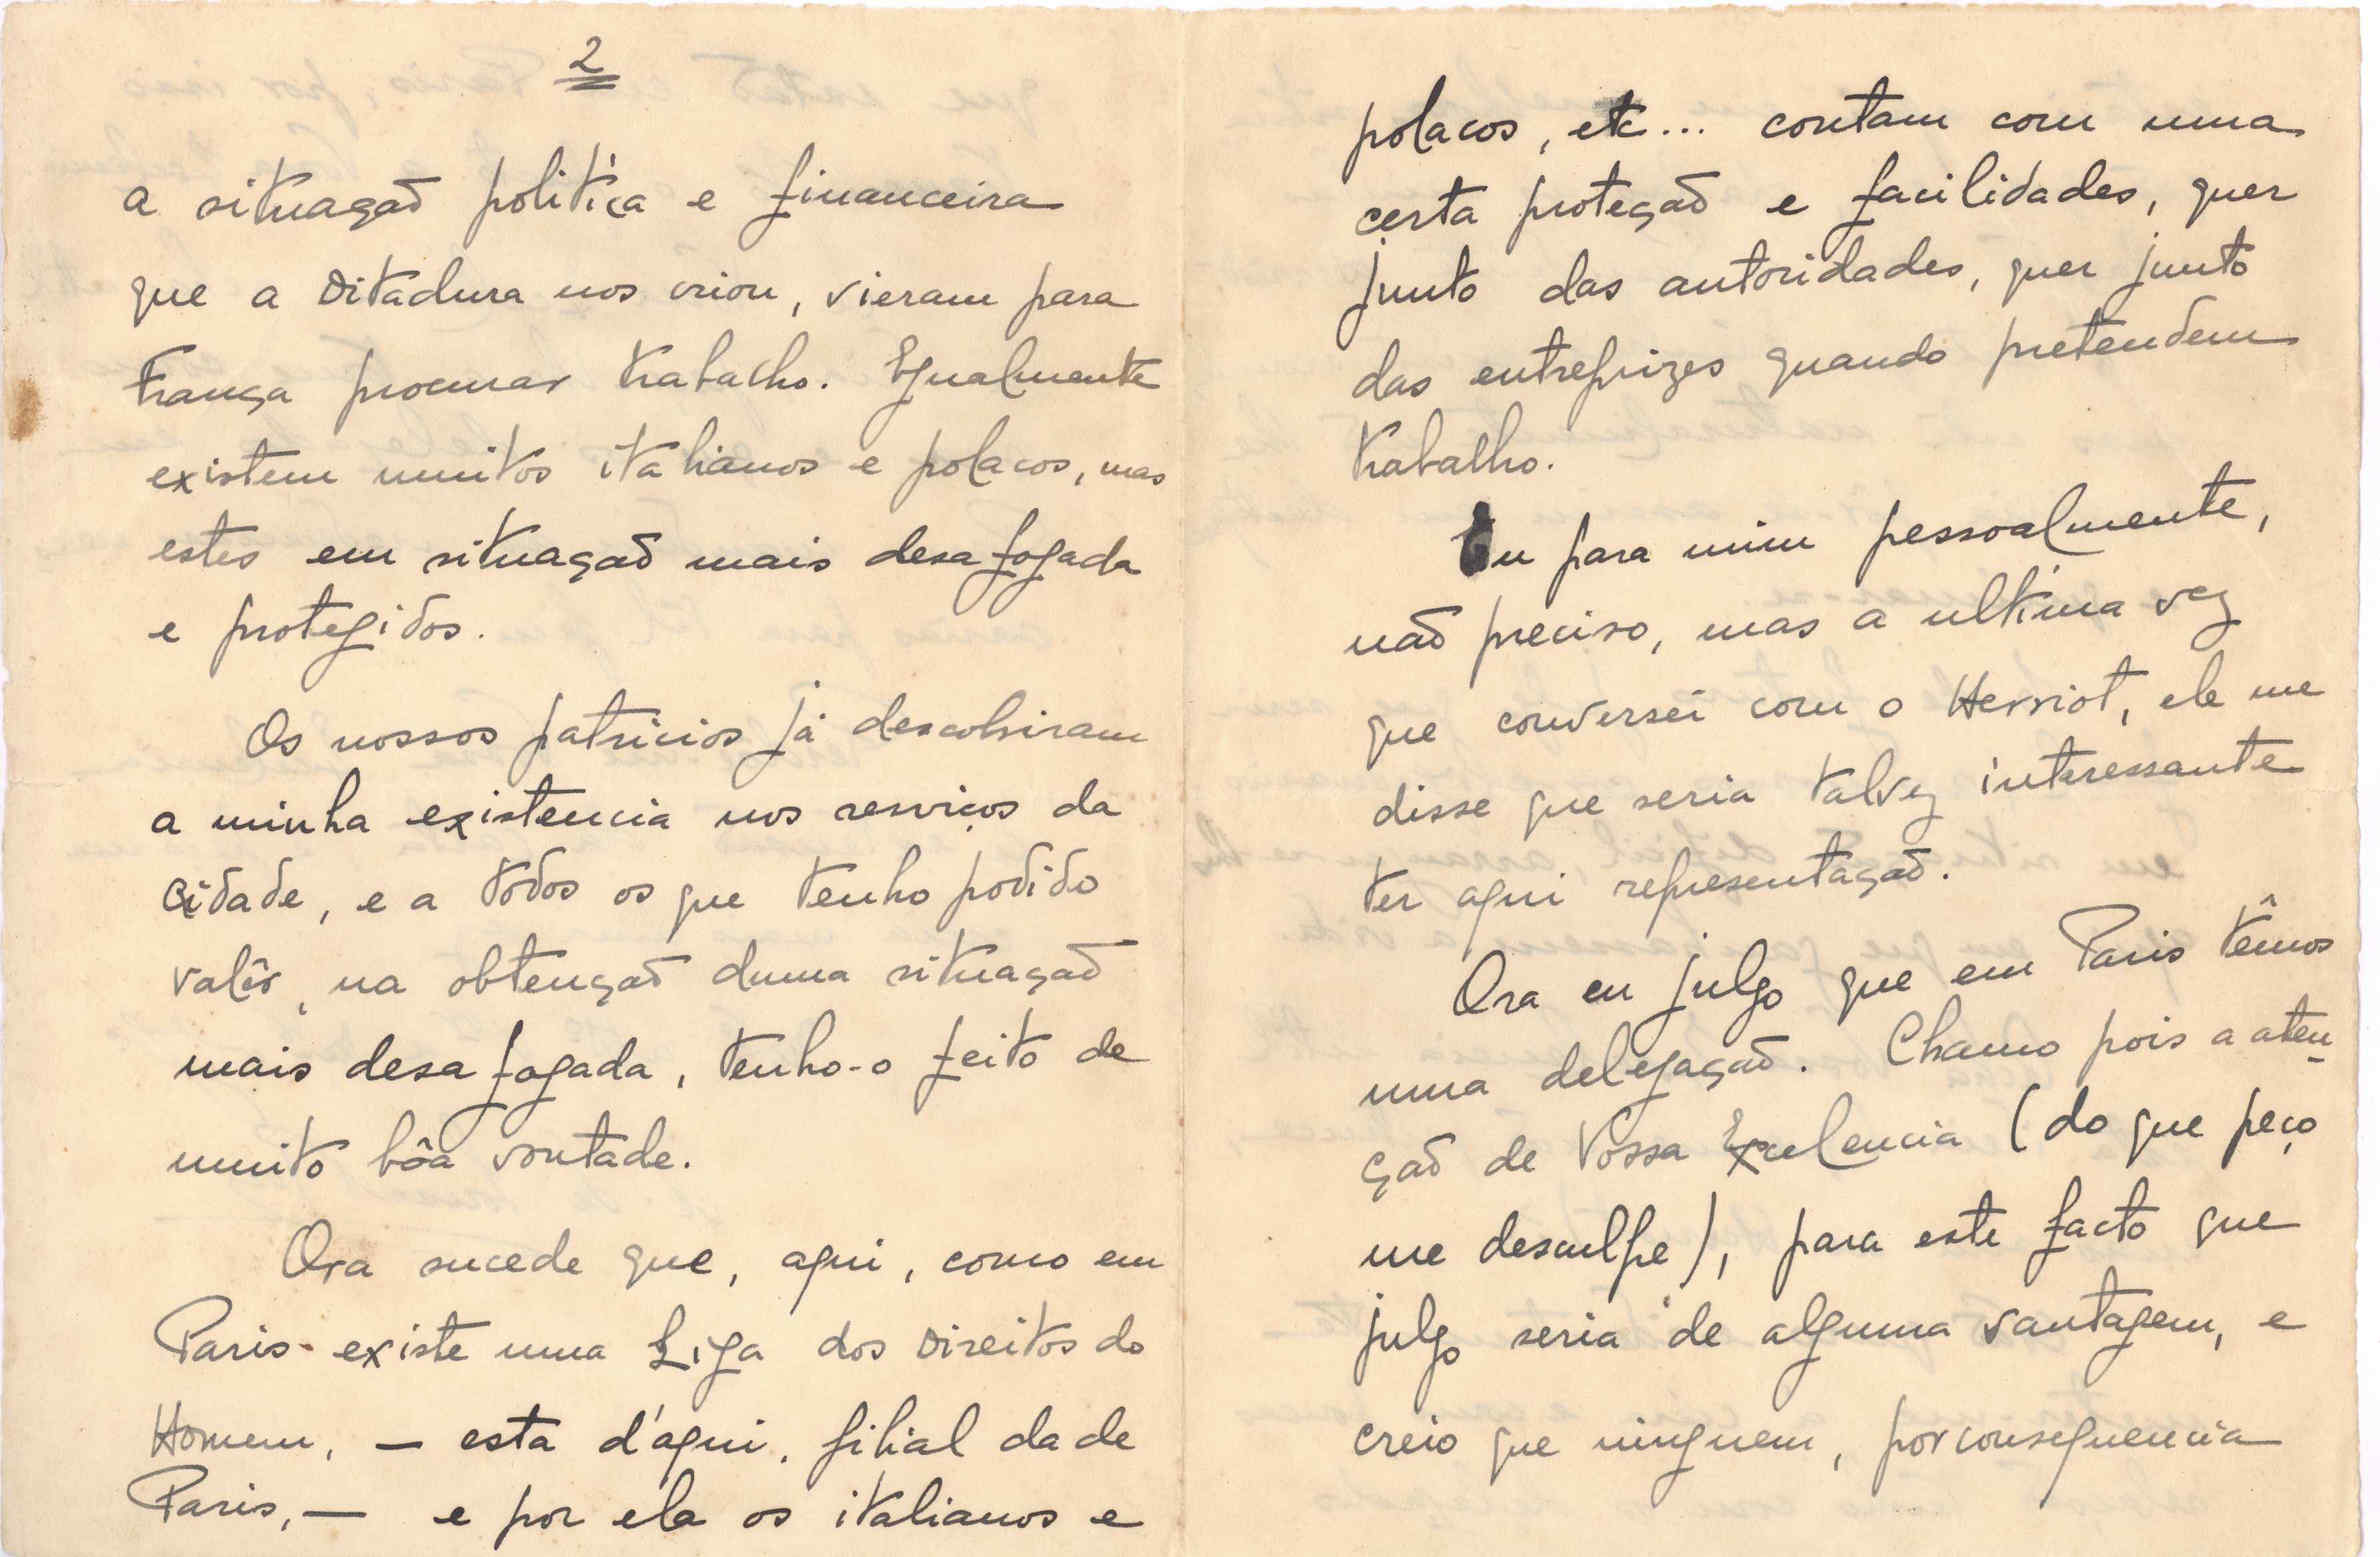 2
a situaçaõ politica e financeira
que a Ditadura nos criou, vieram para
França procurar trabalho. Egualmente
existem muitos italianos e polacos, mas
estes em situaçaõ mais desafogada
e protegidos.
Os nossos patricios já descobriram
a minha existencia nos serviços da
cidade, e a todos os que tenho podido
valêr, na obtençaõ duma situaçaõ
mais desafogada, tenho-o feito de
muito bôa vontade.
Ora sucede que, aqui, como em
Paris existe uma Liga dos Direitos do
Homem, — esta d'aqui, filial da de
Paris, — e por ela os italianos e
polacos, etc... contam com uma
certa proteçaõ e facilidades, quer
junto das autoridades, quer junto
das entreprizes quando pretendem
trabalho.
Eu para mim pessoalmente,
naõ preciso, mas a ultima vez
que conversei com o Herriot, ele me
disse que seria talvez interessante
ter aqui representaçaõ.
Ora eu julgo que em Paris têmos
uma delegaçaõ. Chamo pois a aten-
çaõ de Vossa Excelencia (do que peço
me desculpe), para este facto que
julgo seria de alguma vantagem, e
creio que ninguem, por consequencia